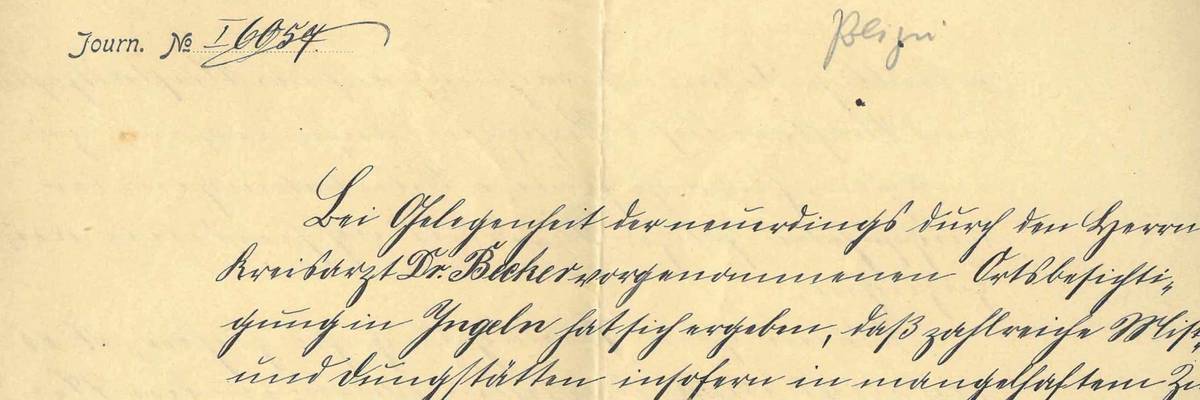 Journ. No I 6057
Polizei
Bei Gelegenheit der neuerdings durch den Herrn
Kreisarzt Dr. Becker vorgenommenen Ortsbesichti-
gung in Ingeln hat sich ergeben, daß zahlreiche Mist-
und Dungstätten insofern in mangelhaftem Zu